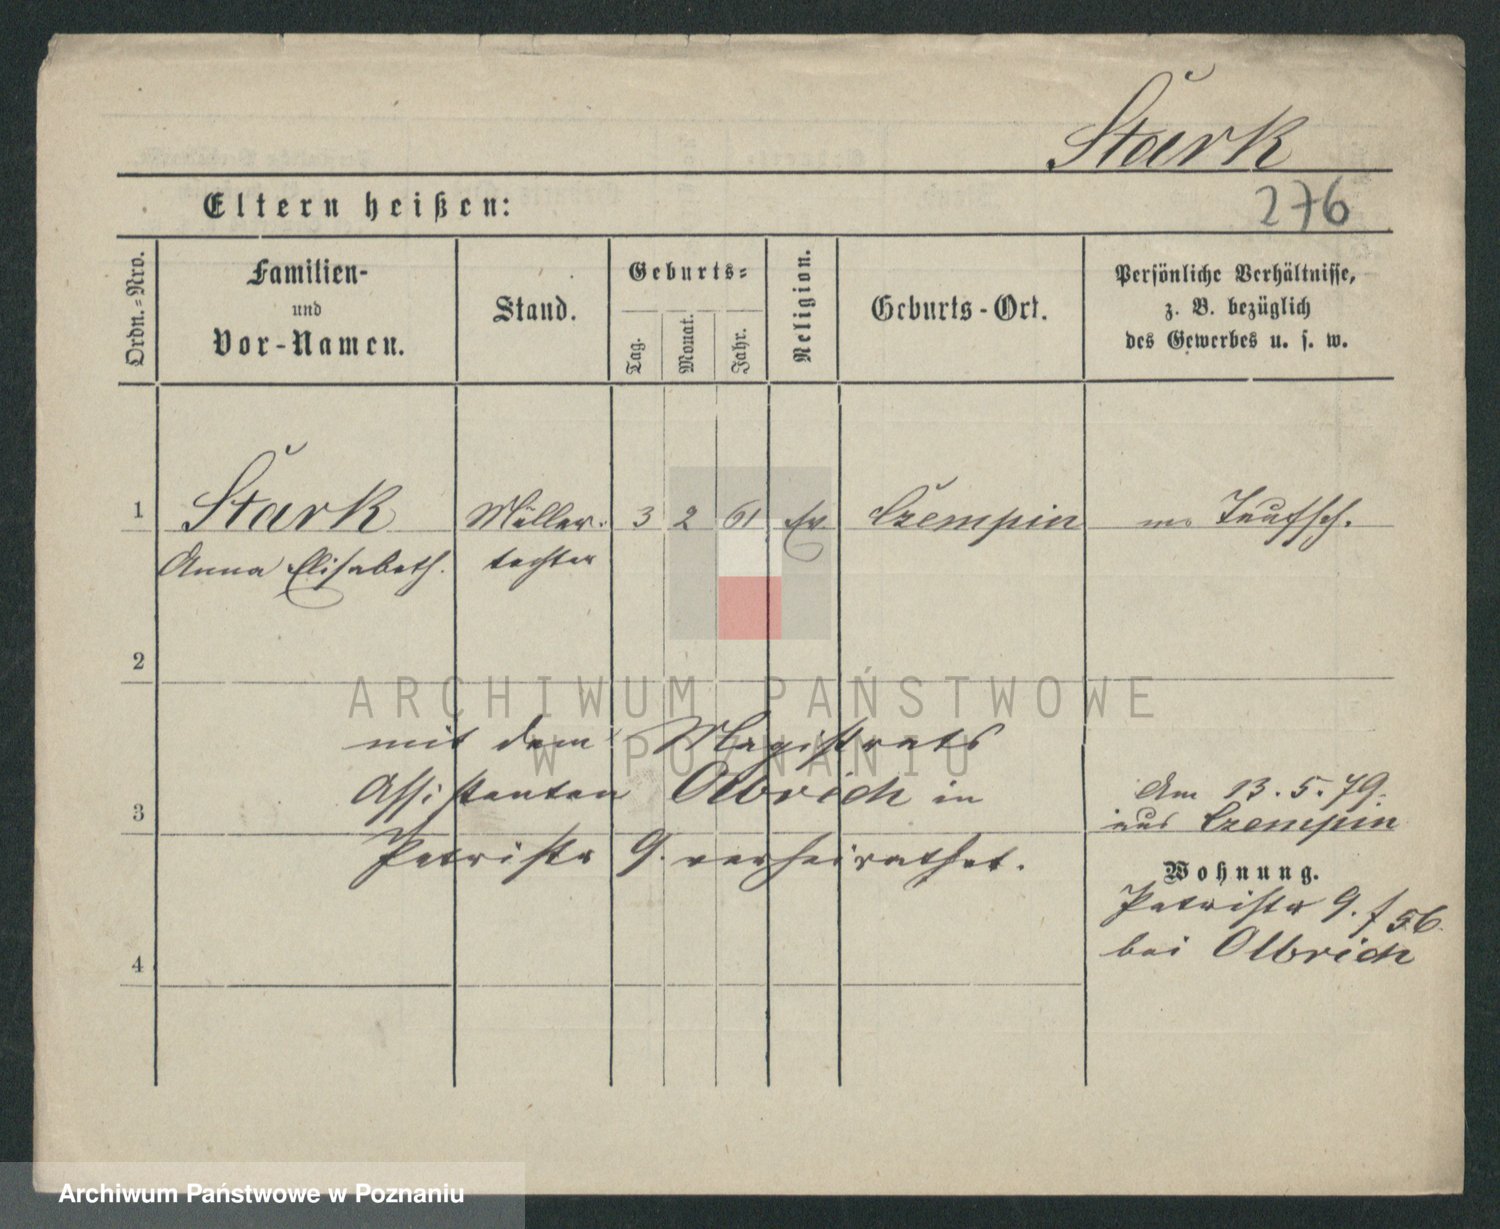 Stark
276
Eltern heißen:
Ordn.=Nro.
Familien-
und
Vor-Namen.
Stand.
Geburts=
Tag.
Monat.
Jahr.
Religion.
Geburts-Ort.
Persönliche Verhältnisse,
z. B. bezüglich
des Gewerbes u. s. w.
1 Stark Müller- 3 2 61 Ev Czempin
Anna Elisabeth. tochter
2
ARCHIWUM PAŃSTWOWE
W POZNANIU
mit dem Magistrats
Assistenten Olbrich in
3
Petristr 9. verheirathet.
Am 13. 5. 79.
aus Czempin
Wohnung.
Petristr 9. f 56.
bei Olbrich
4
Archiwum Państwowe w Poznaniu